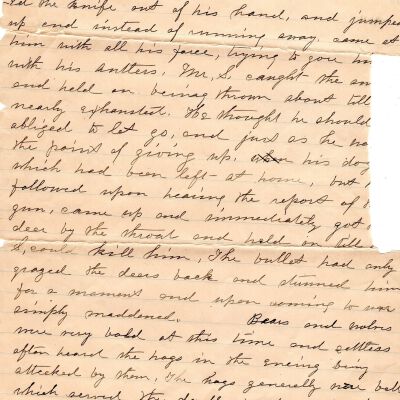 ed the knife out of his hand, and jumped
up end instead of running away. came at
him with all his force, trying to gore him
with his antlers. Mr. S. caught the an
and held on. being thrown about till
nearly exhausted. He thought he should
obliged to let go, and just as he was
the point of giving up, his dog
which had been left at home, but
followed upon hearing the report of
gun, came up and immediately got
deer by the throat and held on till
S. could kill him. The bullet had only
grazed the deers back and stunned him
for a moment and upon coming to was
simply maddened. Bears and wolves
were very bold at this time and settlers
often heard the hogs in the evening being
attacked by them. The hogs generally
which served the